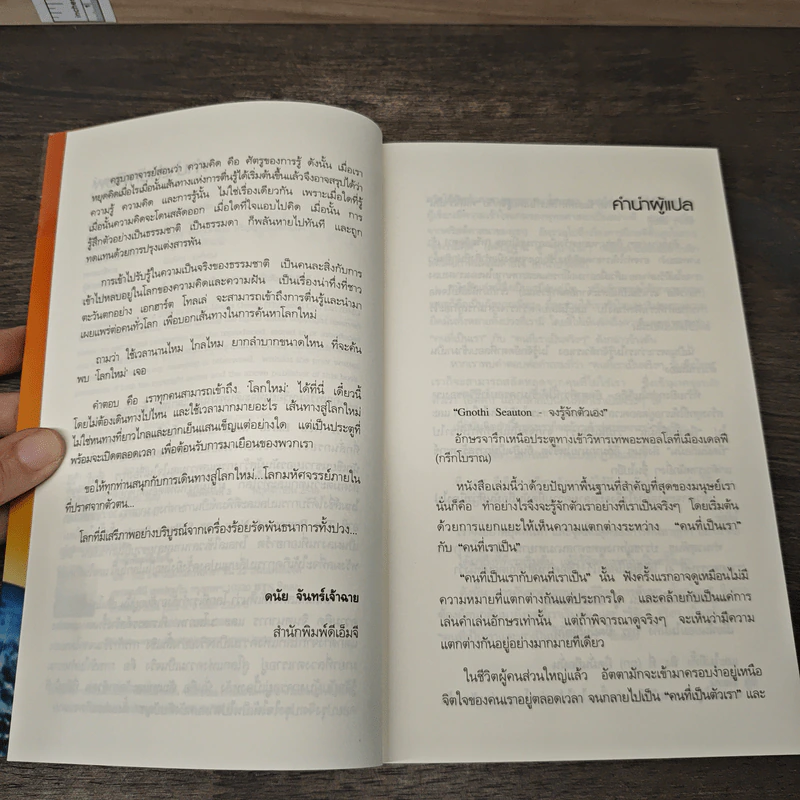 ครูบาอาจารย์สอนว่า ความคิด คือ ศัตรูของการรู้ ดังนั้น เมื่อเรา
หยุดคิดเมื่อไรเมื่อนั้นเส้นทางแห่งการตื่นรู้ได้เริ่มต้นขึ้นแล้วจึงอาจสรุปได้ว่า
ความรู้ ความคิด และการรู้นั้น ไม่ใช่เรื่องเดียวกัน เพราะเมื่อใดที่รู้
เมื่อนั้นความคิดจะโดนสลัดออก เมื่อใดที่ใจแอบไปคิด เมื่อนั้น การ
รู้สึกตัวอย่างเป็นธรรมชาติ เป็นธรรมดา ก็พลันหายไปทันที และถูก
ทดแทนด้วยการปรุงแต่งสารพัน
การเข้าไปรับรู้ในความเป็นจริงของธรรมชาติ เป็นคนละสิ่งกับการ
เข้าไปหลบอยู่ในโลกของความคิดและความฝัน เป็นเรื่องน่าทึ่งที่ชาว
ตะวันตกอย่าง เอกฮาร์ต โทลเล่ จะสามารถเข้าถึงการตื่นรู้และนำมา
เผยแพร่ต่อคนทั่วโลก เพื่อบอกเส้นทางในการค้นหาโลกใหม่
ถามว่า ใช้เวลานานไหม ไกลไหม ยากลำบากขนาดไหน ที่จะค้น
พบ ‘โลกใหม่’ เจอ
คำตอบ คือ เราทุกคนสามารถเข้าถึง ‘โลกใหม่’ ได้ที่นี่ เดี๋ยวนี้
โดยไม่ต้องเดินทางไปไหน และใช้เวลามากมายอะไร เส้นทางสู่โลกใหม่
ไม่ใช่หนทางที่ยาวไกลและยากเย็นแสนเข็ญแต่อย่างใด แต่เป็นประตูที่
พร้อมจะเปิดตลอดเวลา เพื่อต้อนรับการมาเยือนของพวกเรา
ขอให้ทุกท่านสนุกกับการเดินทางสู่โลกใหม่...โลกมหัศจรรย์ภายใน
ที่ปราศจากตัวตน...
โลกที่มีเสรีภาพอย่างบริบูรณ์จากเครื่องร้อยรัดพันธนาการทั้งปวง...
ดนัย จันทร์เจ้าฉาย
สำนักพิมพ์ดีเอ็มจี
คำนำผู้แปล
“Gnothi Seauton - จงรู้จักตัวเอง”
อักษรจารึกเหนือประตูทางเข้าวิหารเทพอะพอลโลที่เมืองเดลฟี
(กรีกโบราณ)
หนังสือเล่มนี้ว่าด้วยปัญหาพื้นฐานที่สำคัญที่สุดของมนุษย์เรา
นั่นก็คือ ทำอย่างไรจึงจะรู้จักตัวเราอย่างที่เราเป็นจริงๆ โดยเริ่มต้น
ด้วยการแยกแยะให้เห็นความแตกต่างระหว่าง “คนที่เป็นเรา”
กับ “คนที่เราเป็น”
“คนที่เป็นเรากับคนที่เราเป็น” นั้น ฟังครั้งแรกอาจดูเหมือนไม่มี
ความหมายที่แตกต่างกันแต่ประการใด และคล้ายกับเป็นแค่การ
เล่นคำเล่นอักษรเท่านั้น แต่ถ้าพิจารณาดูจริงๆ จะเห็นว่ามีความ
แตกต่างกันอยู่อย่างมากมายทีเดียว
ในชีวิตผู้คนส่วนใหญ่แล้ว อัตตามักจะเข้ามาครอบงำอยู่เหนือ
จิตใจของคนเราอยู่ตลอดเวลา จนกลายไปเป็น “คนที่เป็นตัวเรา” และ